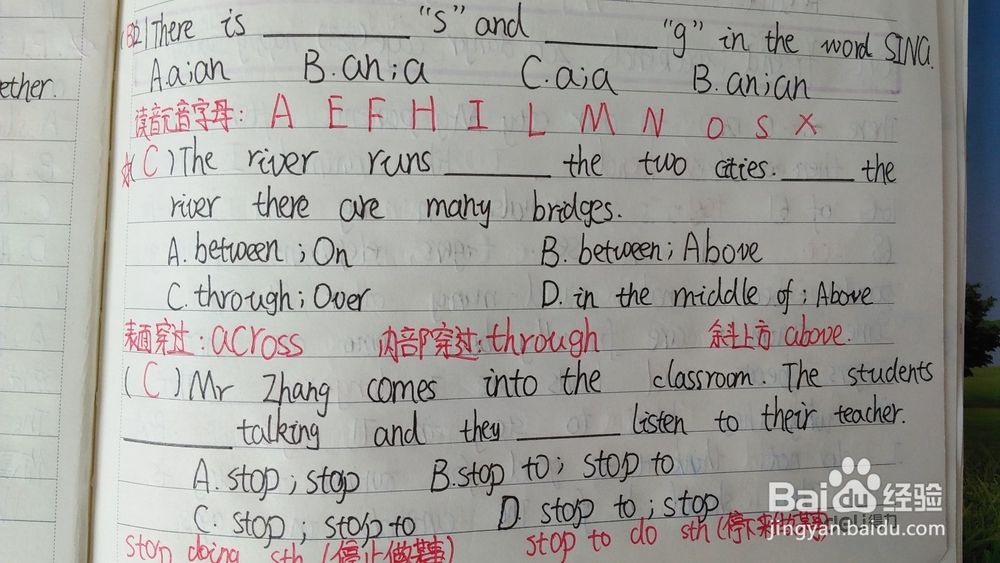 (B2)There is ________ "s" and ________ "g" in the word SING.
A.a;an B.an;a C.a;a B.an;an
ether.
读音元音字母: A E F H I L M N O S X
(C)The river runs ________ the two cities. ________ the
river there are many bridges.
A.between;On B.between;Above
C.through;Over D.in the middle of;Above
表面穿过:across 内部穿过:through 斜上方above.
(C)Mr Zhang comes into the classroom. The students
________ talking and they ________ listen to their teacher.
A.stop;stop B.stop to;stop to
C.stop;stop to D.stop to;stop
stop doing sth(停止做某事) stop to do sth(停下来做某事)
Baidu经验
jingyan.baidu.com